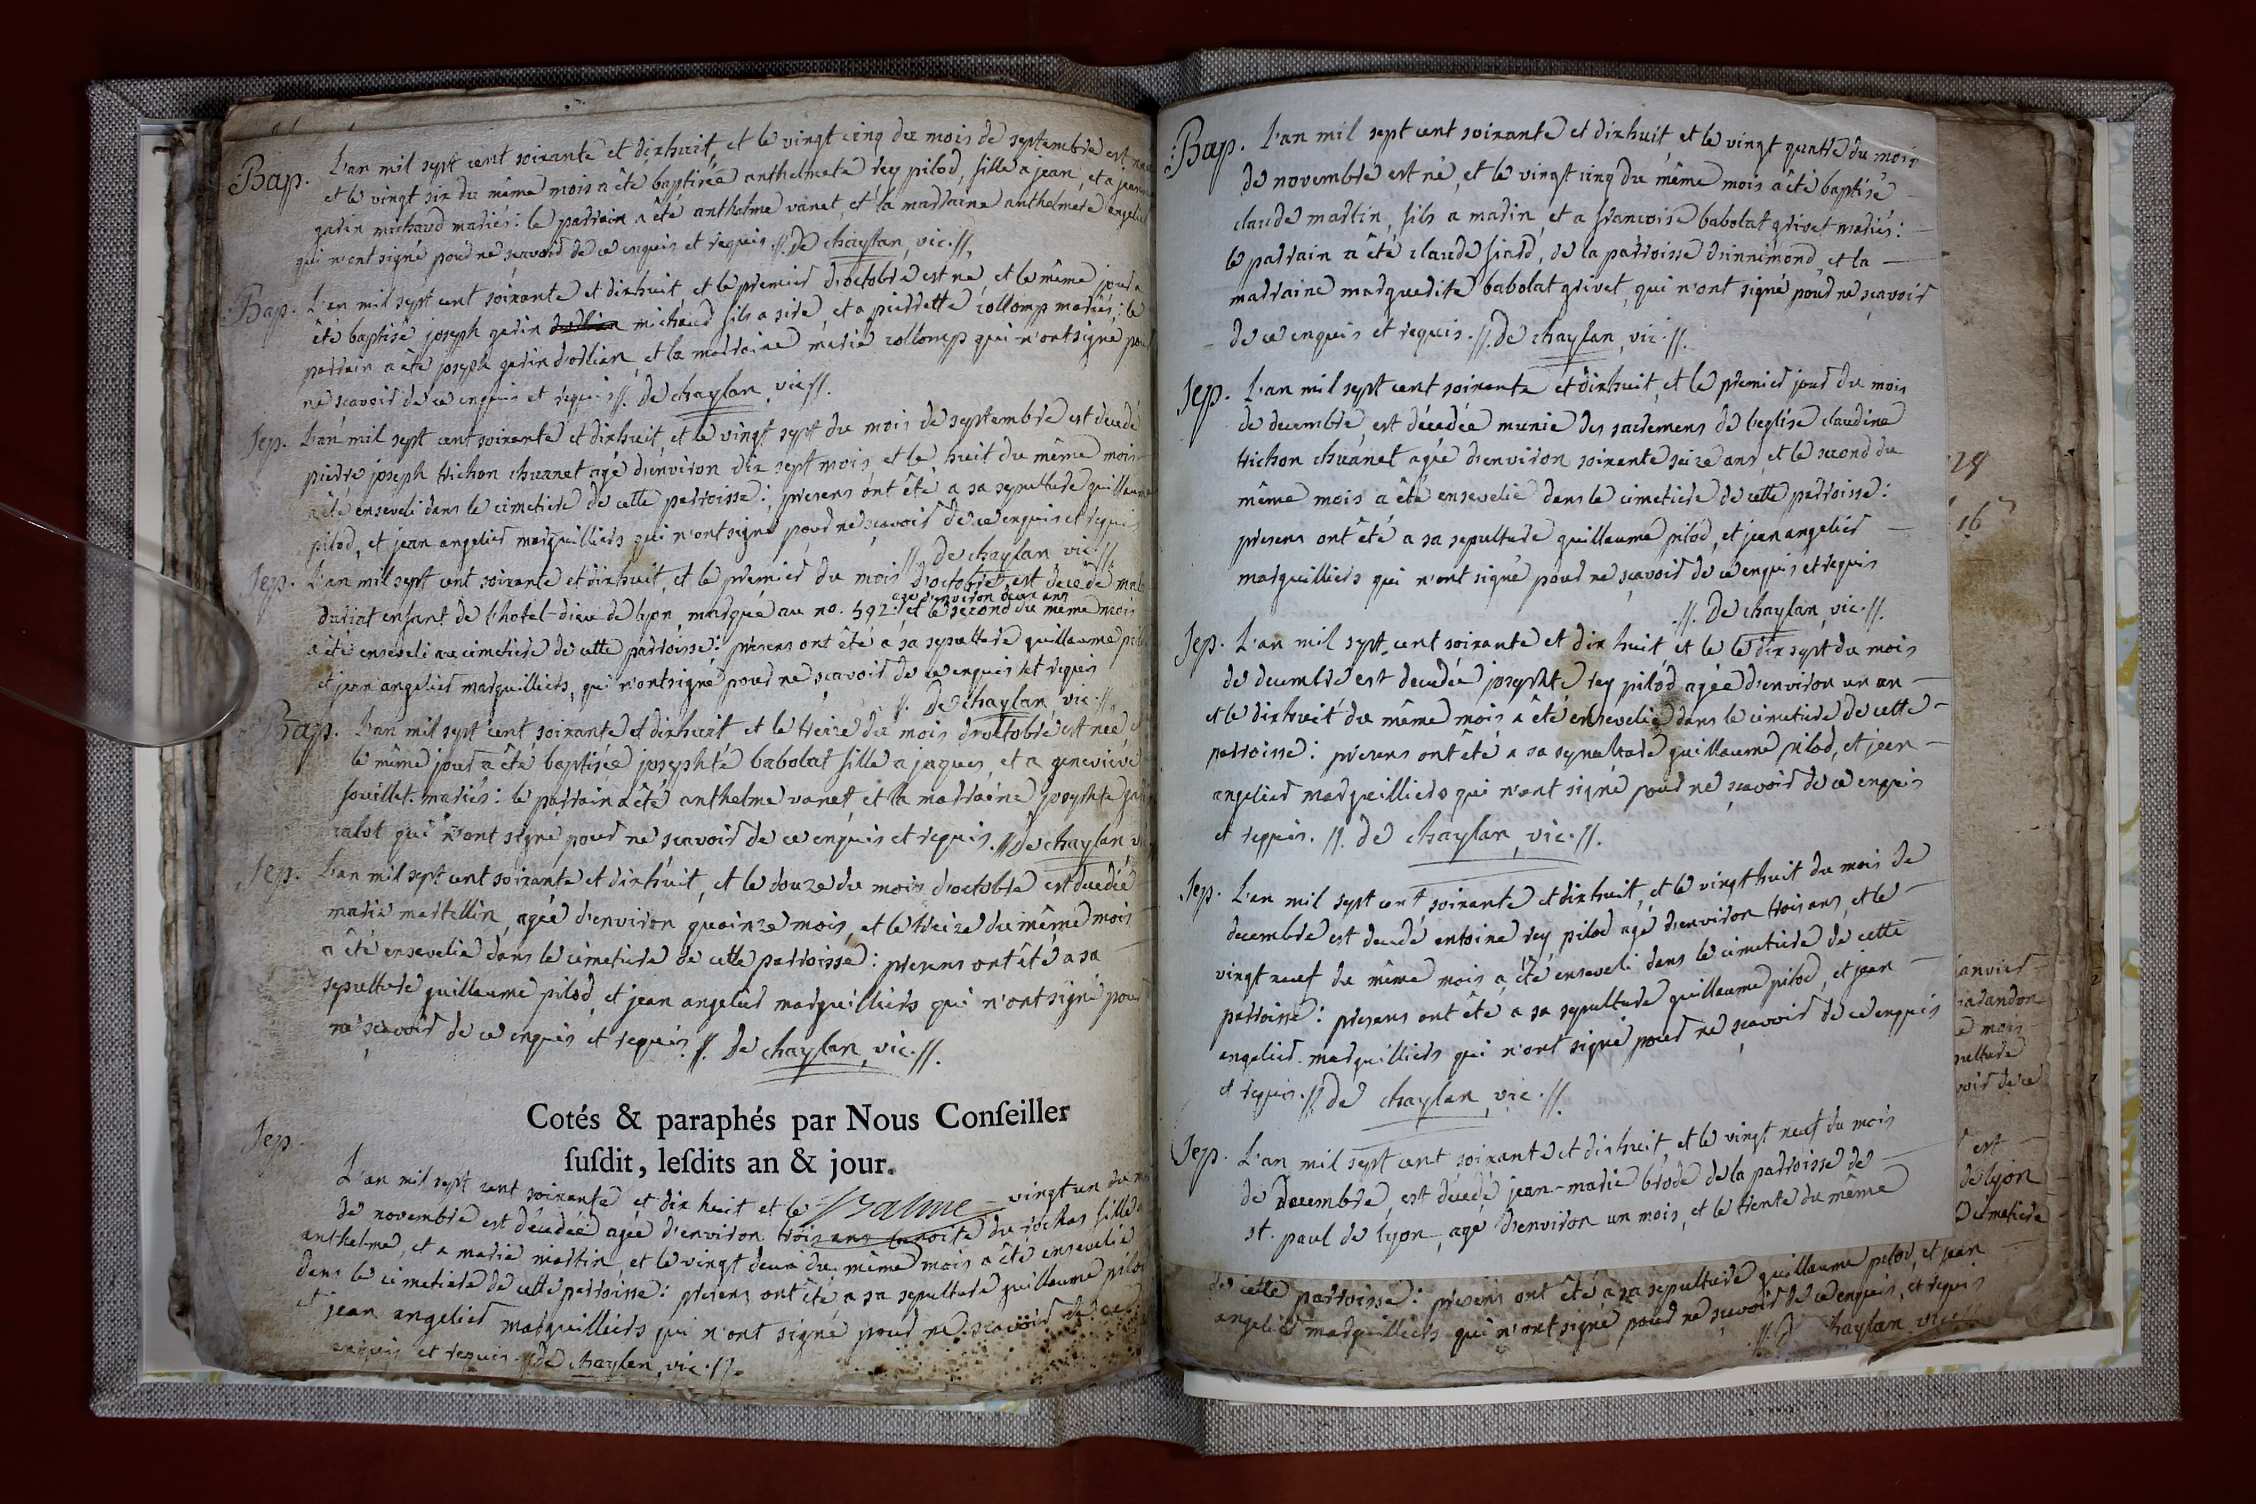 Bap. L'an mil sept cent soixante et dixhuit, et le vingt cinq du mois de septembre est née
et le vingt six du même mois a été baptisée anthelmete rey pilod, fille a jean, et a jeanne
garin michaud mariés: le parrain a été anthelme vanet, et la marraine anthelmete angelier
qui n'ont signé pour ne scavoir de ce enquis et requis. //. De chaylan, vic. //.
Bap. L'an mil sept cent soixante et dixhuit et le premier d'octobre est né et le même jour a
été baptisé joseph garin michaud fils a sire, et a pierrette collomp mariés: le
parrain a été joseph garin d'orlian, et la marraine marie collomp qui n'ont signé pour
ne scavoir de ce enquis et requis //. De chaylan, vic //.
Sep. L'an mil sept cent soixante et dixhuit, et le vingt sept du mois de septembre est decedé
pierre joseph trichon chuanet agé d'environ dix sept mois, et le huit du même mois
a été enseveli dans le cimetiere de cette parroisse: presens ont été a sa sepulture guillaume
pilod, et jean angelier marguilliers qui n'ont signé pour ne scavoir de ce enquis et requis
//. De chaylan vic. //.
Sep. L'an mil sept cent soixante et dixhuit, et le premier du mois d'octobre est decedé
duriat enfant de l'hotel-dieu de lyon, marqué au no. 592: agé d'environ deux ans et le second du même mois
a été enseveli au cimetiere de cette parroisse: presens ont été a sa sepulture guillaume pilod
et jean angelier marguilliers, qui n'ont signé pour ne scavoir de ce enquis et requis
//. De chaylan, vic. //.
Bap. L'an mil sept cent soixante et dixhuit et le treize du mois d'octobre est née, et
le même jour a été baptisée josephte babolat fille a jaques, et a genevieve
fouillet mariés: le parrain a été anthelme vanet et la marraine josephte
calot qui n'ont signé pour ne scavoir de ce enquis et requis. // De chaylan vic
Sep. L'an mil sept cent soixante et dixhuit, et le douze du mois d'octobre est decedée
marie martellin, agée d'environ quainze mois, et le treize du même mois
a été ensevelie dans le cimetiere de cette parroisse: presens ont été a sa
sepulture guillaume pilod, et jean angelier marguilliers qui n'ont signé pour
ne scavoir de ce enquis et requis. //. De chaylan, vic. //.
Cotés & paraphés par Nous Conſeiller
ſuſdit, leſdits an & jour.
Balme
Sep. L'an mil sept cent soixante et dix huit et le vingt un du mois
de novembre est décedée agée d'environ trois ans benoite du rochas fille a
anthelme, et a marie martin, et le vingt deux du même mois a été ensevelie
dans le cimetiere de cette parroisse: presens ont été a sa sepulture guillaume pilod
et jean angelier marguilliers qui n'ont signé pour ne scavoir de ce
enquis et requis. // de chaylan, vic. //.
Bap. L'an mil sept cent soixante et dixhuit, et le vingt quatre du mois
de novembre est né, et le vingt cinq du même mois a été baptisé
claude martin, fils a marin, et a francoise babolat grivet mariés:
le parrain a été claude siard, de la parroisse d'innimond, et la
marraine marguerite babolat grivet, qui n'ont signé pour ne scavoir
de ce enquis et requis. //. De chaylan, vic. //.
Sep. L'an mil sept cent soixante et dixhuit, et le premier jour du mois
de decembre, est décedée munie des sacremens de l'eglise claudine
trichon chuanet agée d'environ soixante seize ans, et le second du
même mois a été ensevelie dans le cimetiere de cette parroisse:
presens ont été a sa sepulture guillaume pilod, et jean angelier
marguilliers qui n'ont signé pour ne scavoir de ce enquis et requis
//. De chaylan, vic. //.
Sep. L'an mil sept cent soixante et dix huit et le le dix sept du mois
de decembre est decedée josephte rey pilod agée d'environ un an
et le dixhuit du même mois a été ensevelie dans le cimetiere de cette
parroisse: presens ont été a sa sepulture guillaume pilod, et jean
angelier marguilliers qui n'ont signé pour ne scavoir de ce enquis
et requis. //. de chaylan, vic. //.
Sep. L'an mil sept cent soixante et dixhuit, et le vingt huit du mois de
decembre est decedé antoine rey pilod agé d'environ trois ans, et le
vingt neuf du même mois a été enseveli dans le cimetiere de cette
parroisse: presens ont été a sa sepulture guillaume pilod, et jean
angelier marguilliers qui n'ont signé pour ne scavoir de ce enquis
et requis. // de chaylan, vic. //.
Sep. L'an mil sept cent soixante et dixhuit, et le vingt neuf du mois
de decembre, est décedé jean-marie brode de la parroisse de
st. paul de lyon, agé d'environ un mois, et le trente du même
de cette parroisse: presens ont été a sa sepulture guillaume pilod, et jean
angelier marguilliers qui n'ont signé pour ne scavoir de ce enquis, et requis
chaylan vic
16
anvier
mois
pulture
voir de ce
est
de lyon
cimetiere